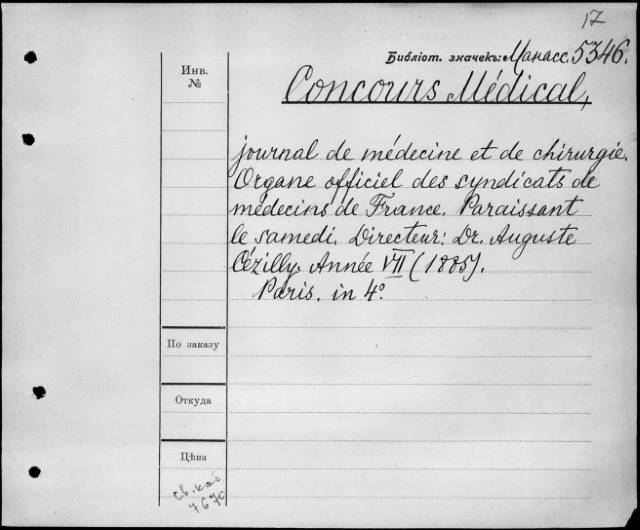 17
Библіот. значекъ: Манасс. 5346.
Инв.
№
Concours Médical,
journal de médecine et de chirurgie.
Organe officiel des syndicats de
médecins de France. Paraissant
le samedi. Directeur: Dr. Auguste
Cézilly. Année VII (1885).
Paris. in 4°.
По заказу
Откуда
Цѣна